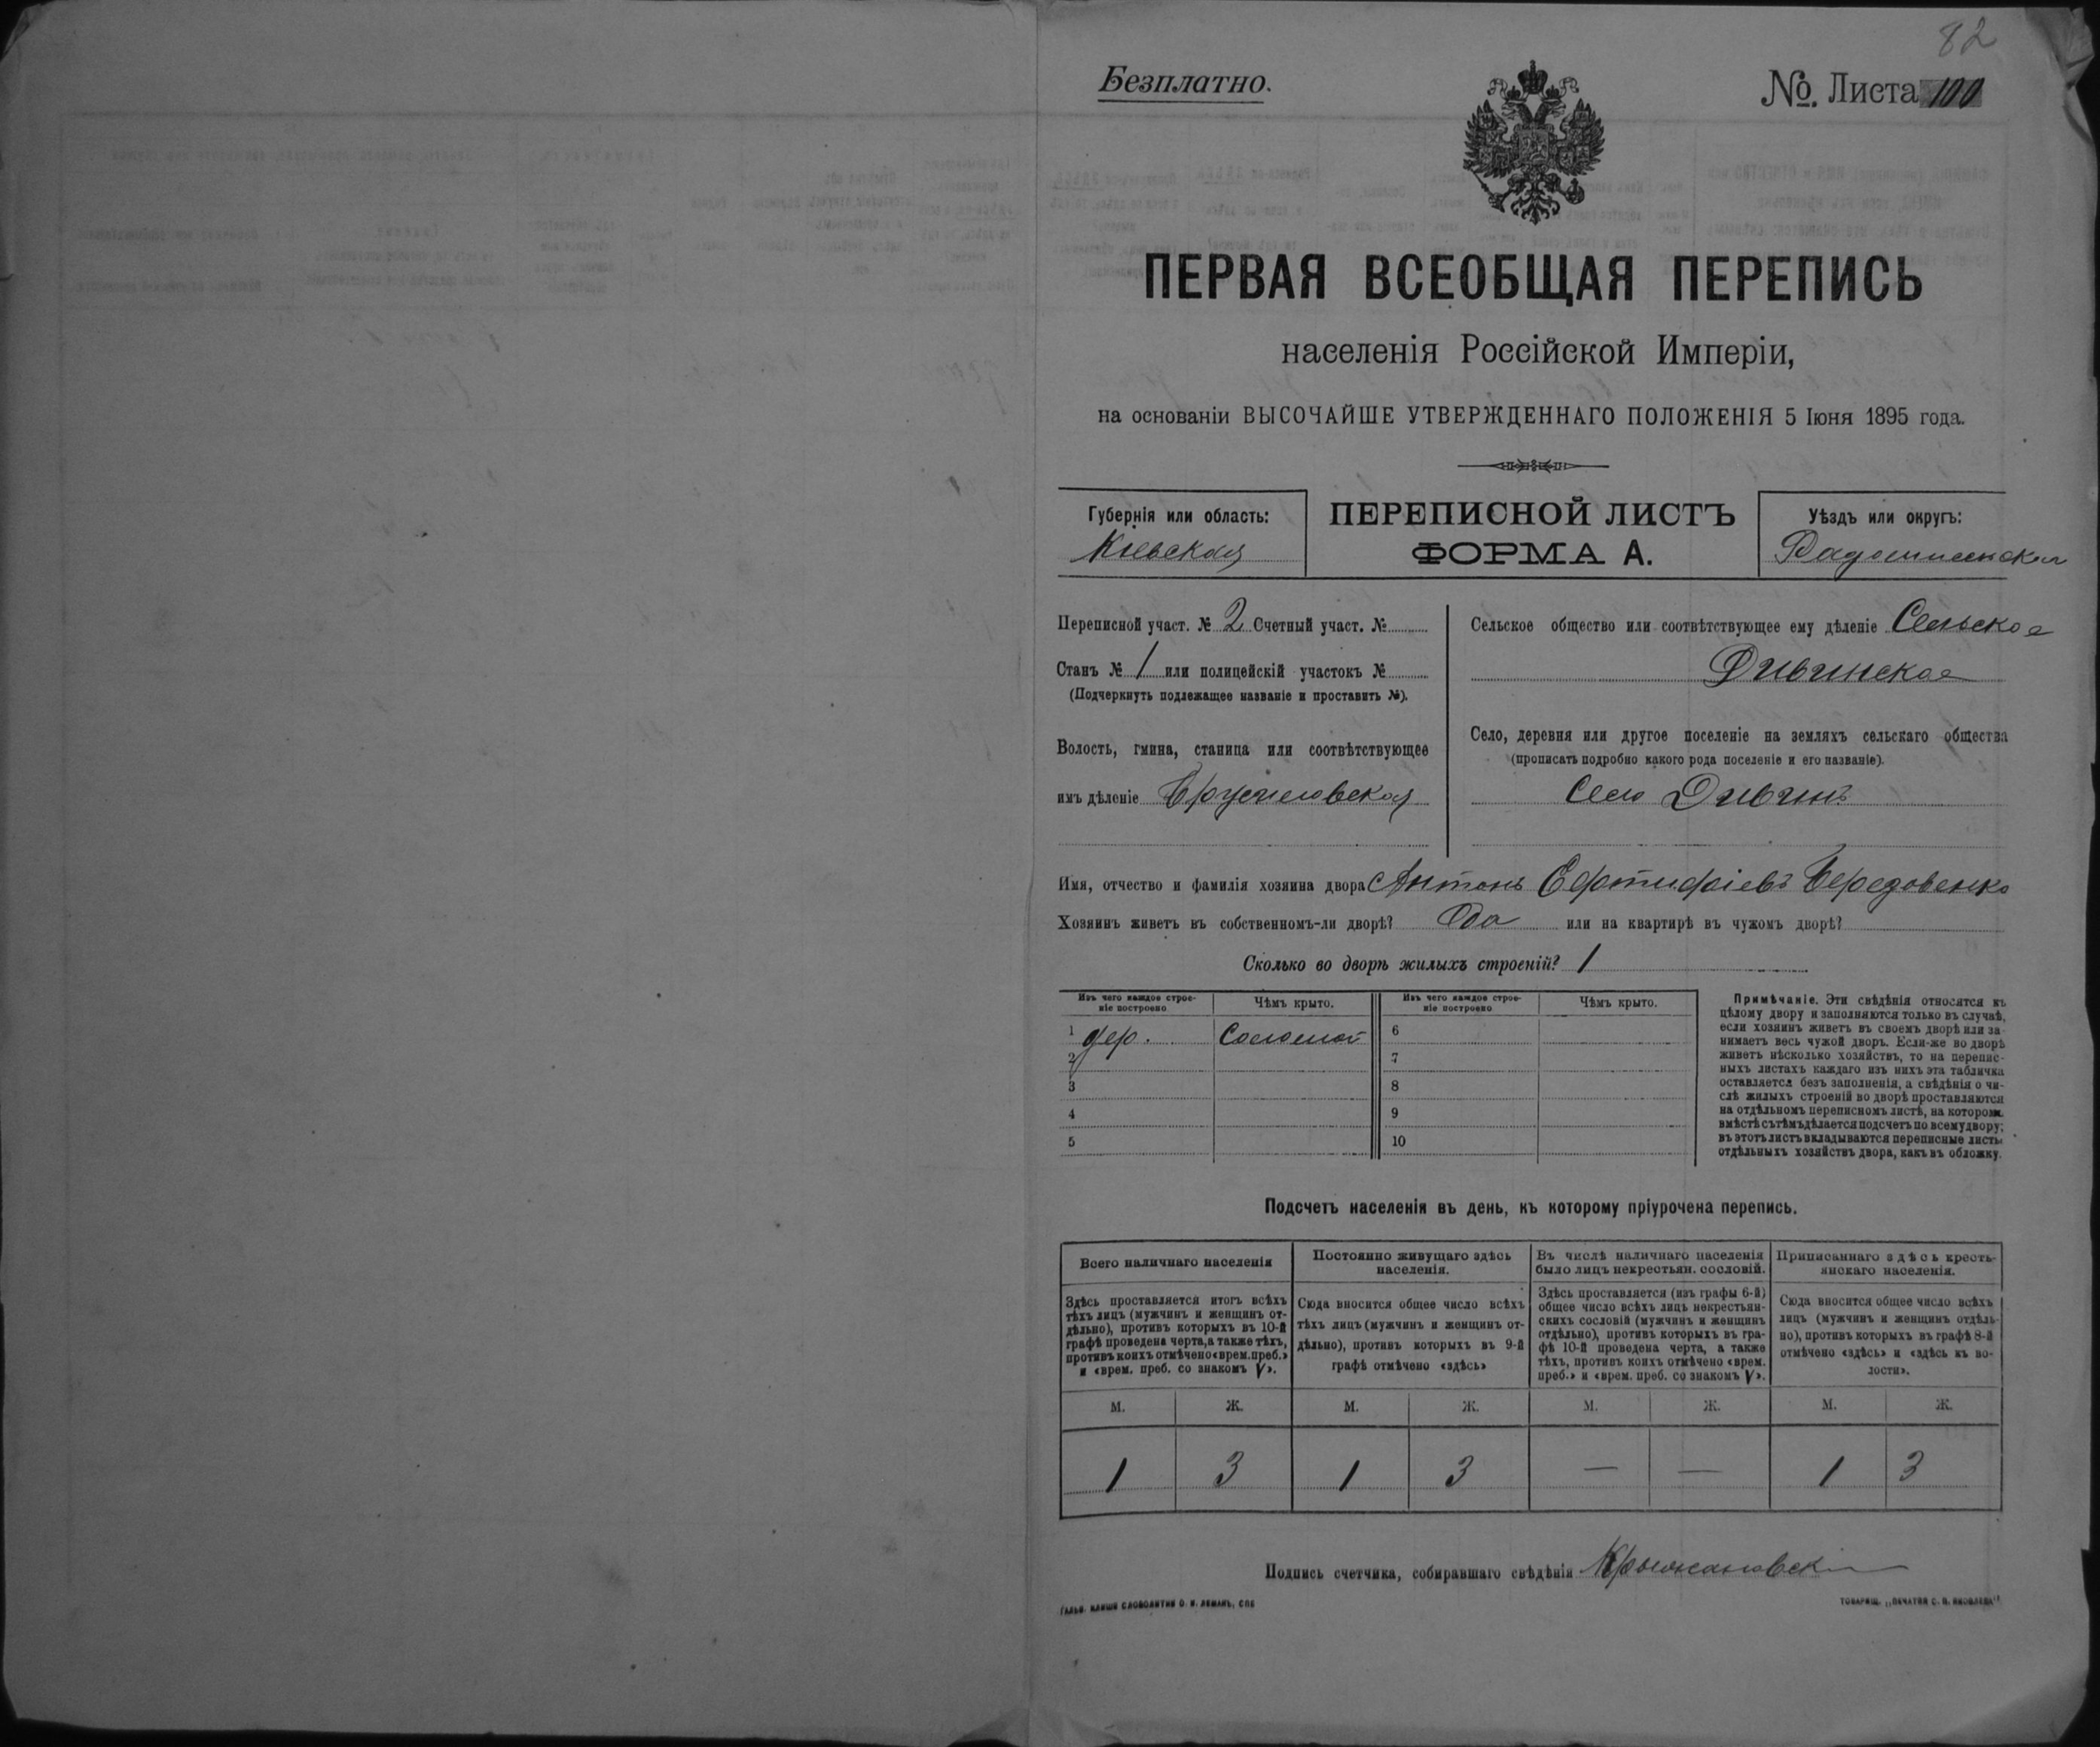 82
Безплатно.
№. Листа 100
ПЕРВАЯ ВСЕОБЩАЯ ПЕРЕПИСЬ
населенія Россійской Имперіи,
на основаніи ВЫСОЧАЙШЕ УТВЕРЖДЕННАГО ПОЛОЖЕНІЯ 5 Іюня 1895 года.
Губернія или область:
Кіевская
ПЕРЕПИСНОЙ ЛИСТЪ
ФОРМА А.
Уѣздъ или округъ:
Переписной участ. № 2 Счетный участ. №
Станъ № 1 или полицейскій участокъ №
(Подчеркнуть подлежащее названіе и проставить №).
Волость, гмина, станица или соотвѣтствующее
имъ дѣленіе Брусиловская
Сельское общество или соотвѣтствующее ему дѣленіе Сельское
Дивинское
Село, деревня или другое поселеніе на земляхъ сельскаго общества
(прописать подробно какого рода поселеніе и его названіе).
Село Дивинъ
Имя, отчество и фамилія хозяина двора Антонъ
Хозяинъ живетъ въ собственномъ-ли дворѣ? Да или на квартирѣ въ чужомъ дворѣ?
Сколько во дворѣ жилыхъ строеній? 1
Изъ чего каждое строе-
ніе построено
Чѣмъ крыто.
Изъ чего каждое строе-
ніе построено
Чѣмъ крыто.
1 дер. Соломой 6
2 7
3 8
4 9
5 10
Примѣчаніе. Эти свѣдѣнія относятся къ
цѣлому двору и заполняются только въ случаѣ,
если хозяинъ живетъ въ своемъ дворѣ или за-
нимаетъ весь чужой дворъ. Если-же во дворѣ
живетъ нѣсколько хозяйствъ, то на перепис-
ныхъ листахъ каждаго изъ нихъ эта табличка
оставляется безъ заполненія, а свѣдѣнія о чи-
слѣ жилыхъ строеній во дворѣ проставляются
на отдѣльномъ переписномъ листѣ, на которомъ
вмѣстѣ съ тѣмъ дѣлается подсчетъ по всему двору;
въ этотъ листъ вкладываются переписные листы
отдѣльныхъ хозяйствъ двора, какъ въ обложку.
Подсчетъ населенія въ день, къ которому пріурочена перепись.
Всего наличнаго населенія
Здѣсь проставляется итогъ всѣхъ
тѣхъ лицъ (мужчинъ и женщинъ от-
дѣльно), противъ которыхъ въ 10-й
графѣ проведена черта, а также тѣхъ,
противъ коихъ отмѣчено «врем. преб.»
и «врем. преб. со знакомъ V».
Постоянно живущаго здѣсь
населенія.
Сюда вносится общее число всѣхъ
тѣхъ лицъ (мужчинъ и женщинъ от-
дѣльно), противъ которыхъ въ 9-й
графѣ отмѣчено «здѣсь»
Въ числѣ наличнаго населенія
было лицъ некрестьян. сословій.
Здѣсь проставляется (изъ графы 6-й)
общее число всѣхъ лицъ некрестьян-
скихъ сословій (мужчинъ и женщинъ
отдѣльно), противъ которыхъ въ гра-
фѣ 10-й проведена черта, а также
тѣхъ, противъ коихъ отмѣчено «врем.
преб.» и «врем. преб. со знакомъ V».
Приписаннаго здѣсь кресть-
янскаго населенія.
Сюда вносится общее число всѣхъ
лицъ (мужчинъ и женщинъ отдѣль-
но), противъ которыхъ въ графѣ 8-й
отмѣчено «здѣсь» и «здѣсь въ во-
лости».
М. Ж. М. Ж. М. Ж. М. Ж.
1 3 1 3 — — 1 3
Подпись счетчика, собиравшаго свѣдѣнія Крыжановскій
ГАЛЬВ. КЛИШЕ СЛОВОЛИТНИ О. И. ЛЕМАНЪ, СПБ
ТОВАРИЩ. „ПЕЧАТНЯ С. П. ЯКОВЛЕВА"